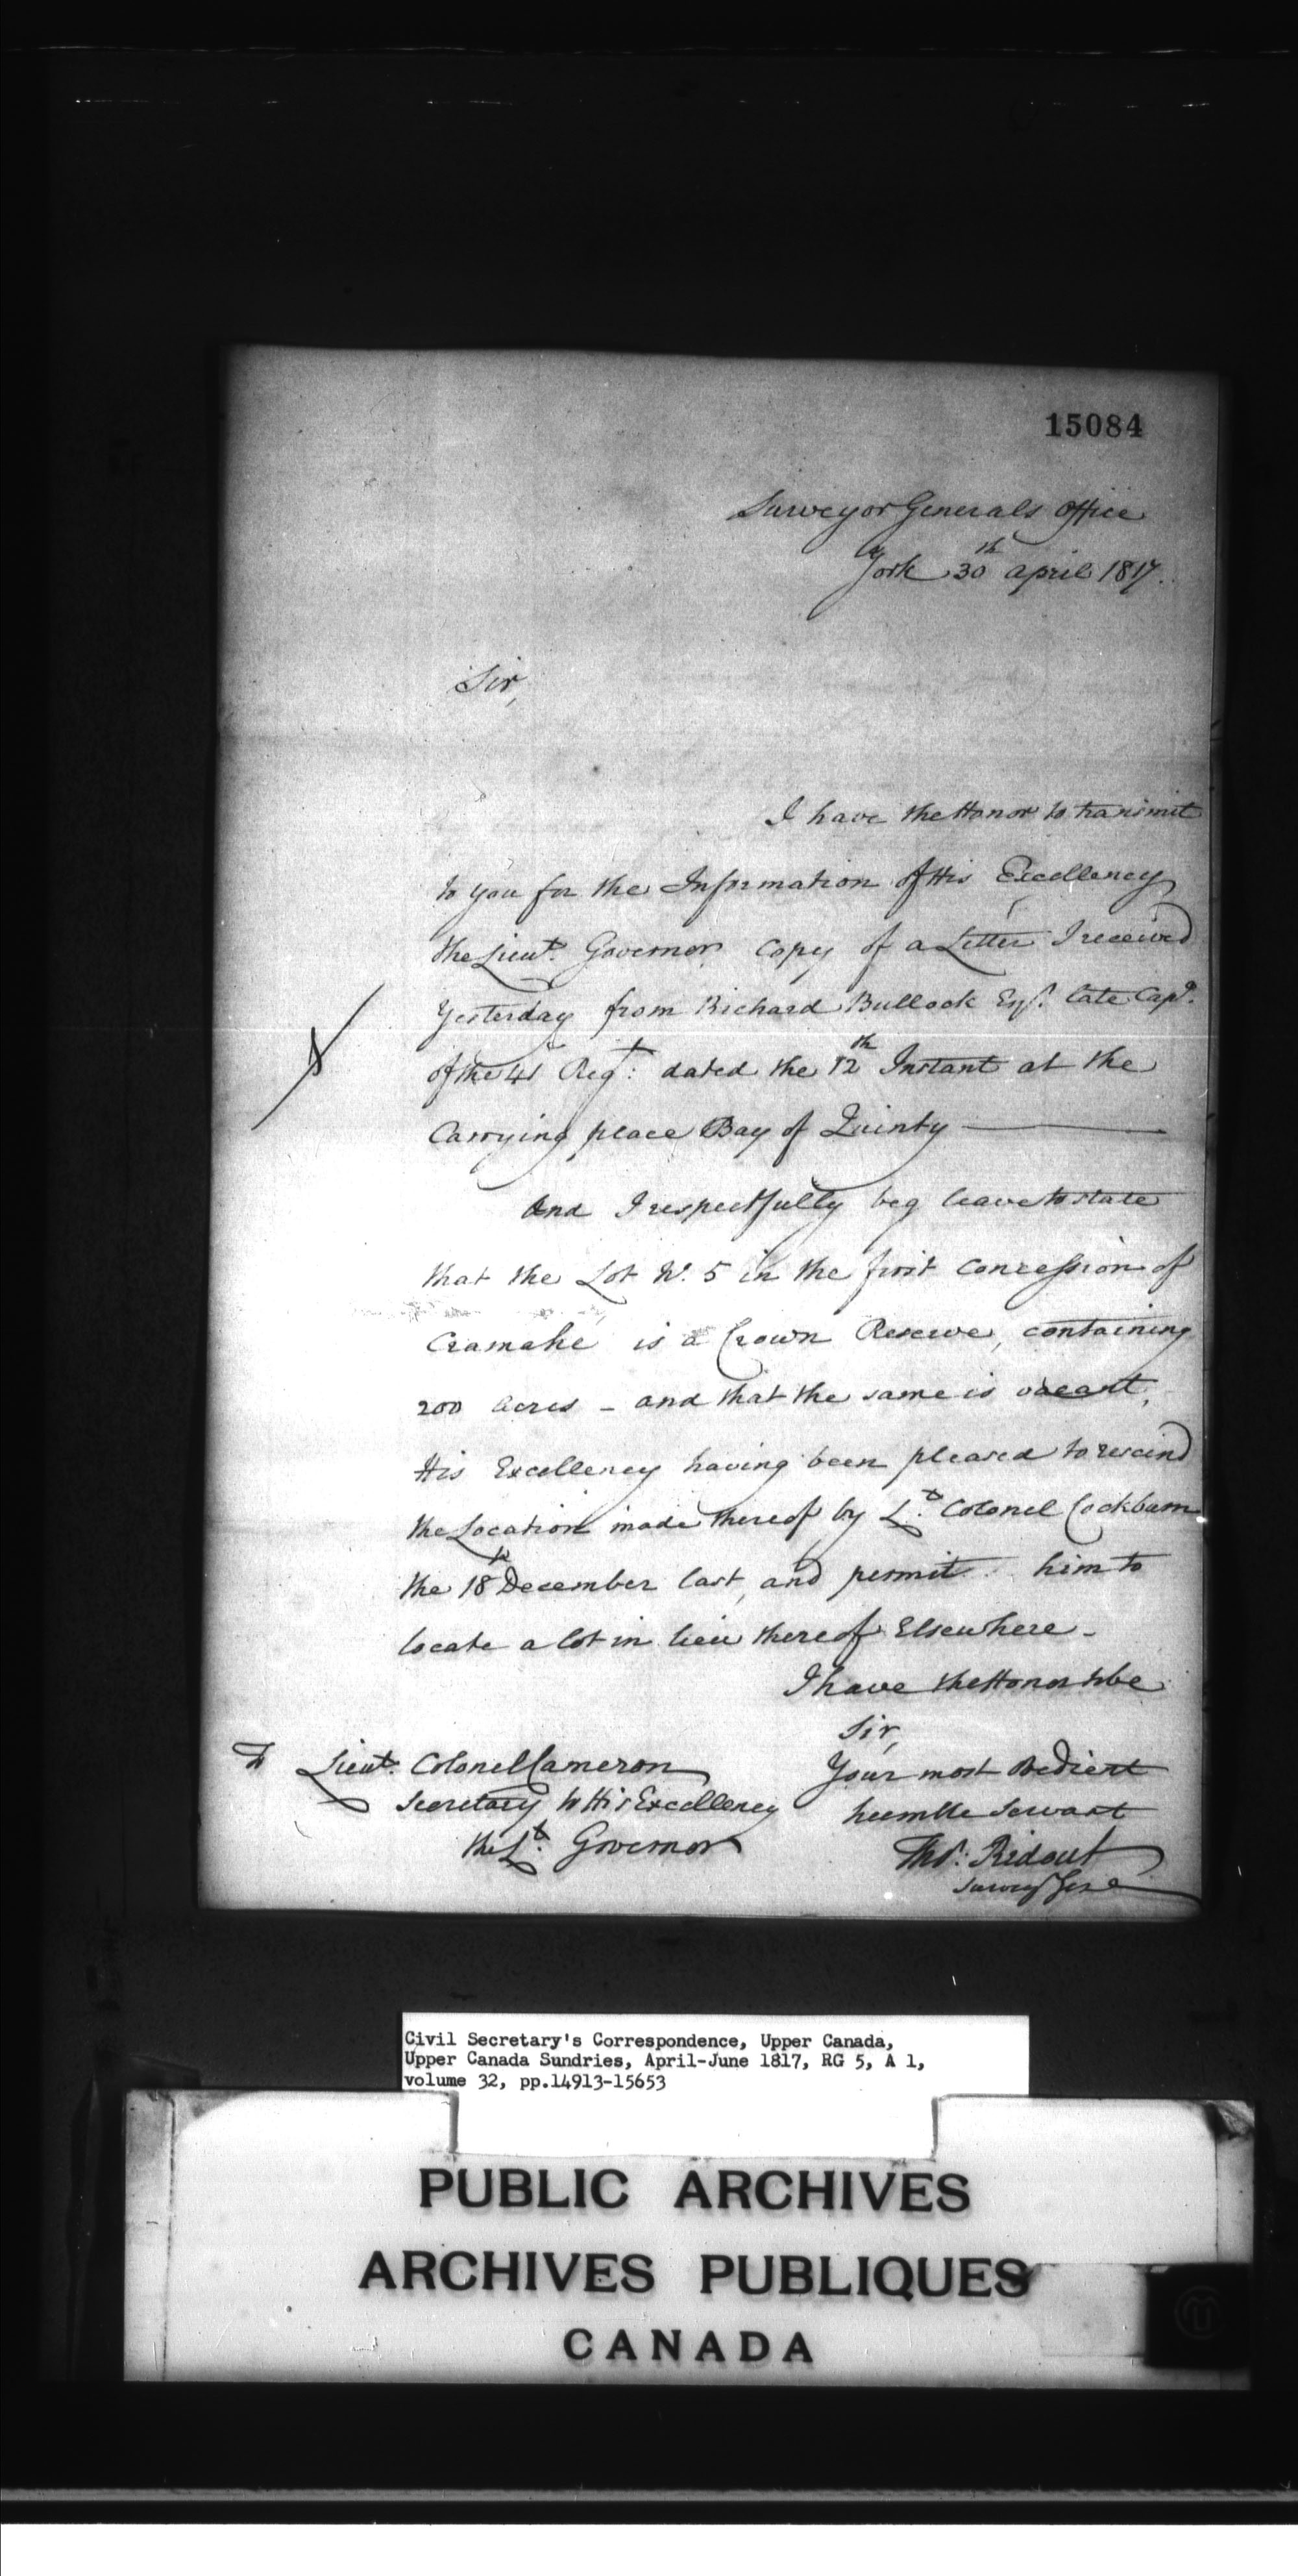 15084
Surveyor Generals Office
York 30th April 1817.
Sir,
I have the Honor to transmit
to you for the Information of His Excellency
the Lieut. Governor copy of a Letter I received
Yesterday from Richard Bullock Esqr. late Capt.
of the 41 Regt: dated the 12th Instant at the
Carrying place Bay of Quinty
And I respectfully beg leave to state
that the Lot No. 5 in the first Concession of
Cramahe is a Crown Reserve, containing
200 Acres - and that the same is vacant,
His Excellency having been pleased to rescind
the Location made thereof by Lt. Colonel Cockburn
the 18th December last, and permit him to
locate a lot in lieu thereof Elsewhere -
I have the Honor to be
Sir,
Your most Obedient
humble Servant
Thos: Ridout
Survey Genl
To Lieut. Colonel Cameron
Secretary to His Excellency
the Lt. Governor
Civil Secretary's Correspondence, Upper Canada,
Upper Canada Sundries, April-June 1817, RG 5, A 1,
volume 32, pp.14913-15653
PUBLIC ARCHIVES
ARCHIVES PUBLIQUES
CANADA